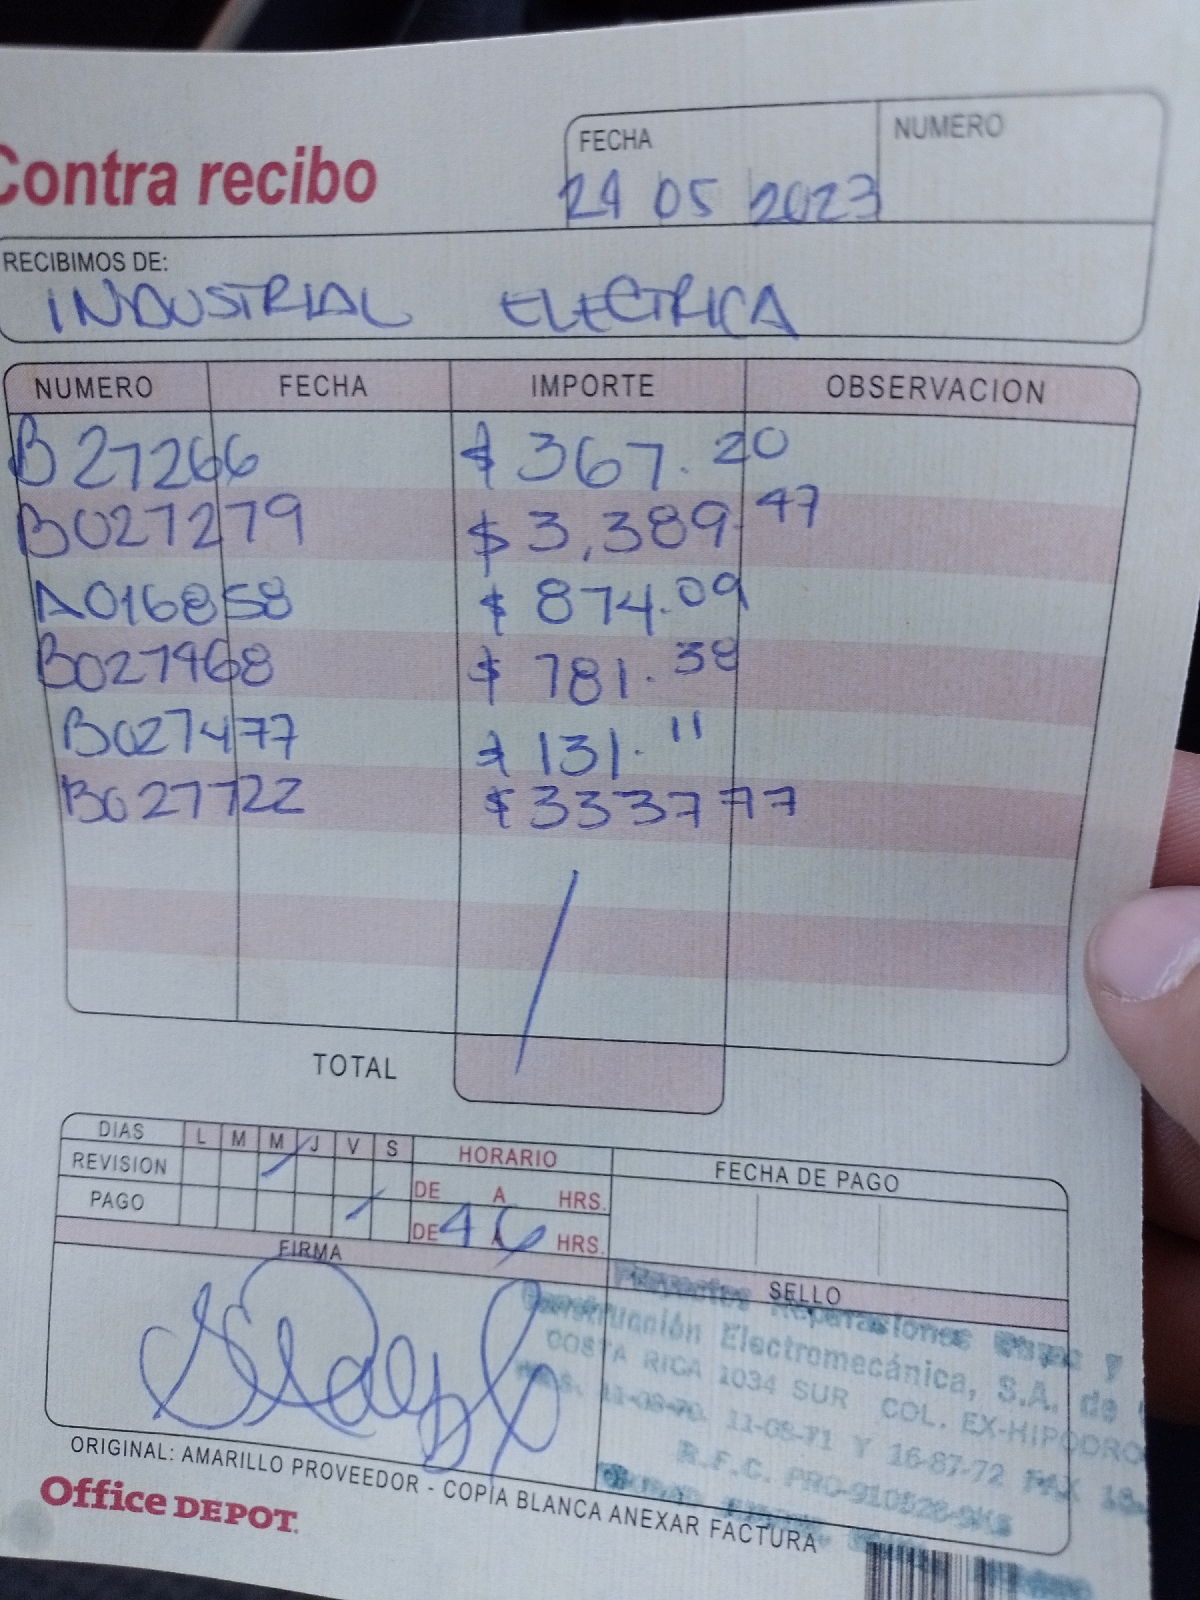 Contra recibo
FECHA
NUMERO
24 05 2023
RECIBIMOS DE:
INDUSTRIAL ELECTRICA
NUMERO FECHA IMPORTE OBSERVACION
B 27266 $ 367.20
B027279 $ 3,389.47
A016858 $ 874.09
B027468 $ 781.38
B027477 $ 131.11
B027722 $ 3337 77
TOTAL
DIAS L M M J V S HORARIO FECHA DE PAGO
REVISION DE A HRS.
PAGO DE 4 A 6 HRS.
FIRMA SELLO
Proyectos Reparaciones y
Construcción Electromecánica, S.A. de
COSTA RICA 1034 SUR COL. EX-HIPODRO
11-08-70, 11-08-71 Y 16-87-72 FAX 16-
R.F.C. PRO-910528-
ORIGINAL: AMARILLO PROVEEDOR - COPIA BLANCA ANEXAR FACTURA
Office DEPOT.